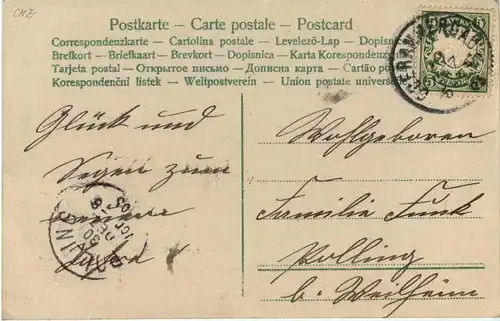 CHZ
Postkarte – Carte postale – Postcard
Correspondenzkarte – Cartolina postale – Levelező-Lap – Dopisnic
Brefkort – Briefkaart – Brevkort – Dopisnica – Karta Korespondenc
Tarjeta postal – Открытое письмо – Дописна карта – Cartão po
Korespondenční listek – Weltpostverein – Union postale universe
Glück und
Segen zum
neuen
Jahre
Wohlgeboren
Familie Funk
Polling
b. Weilheim
5 5
30 DE
03